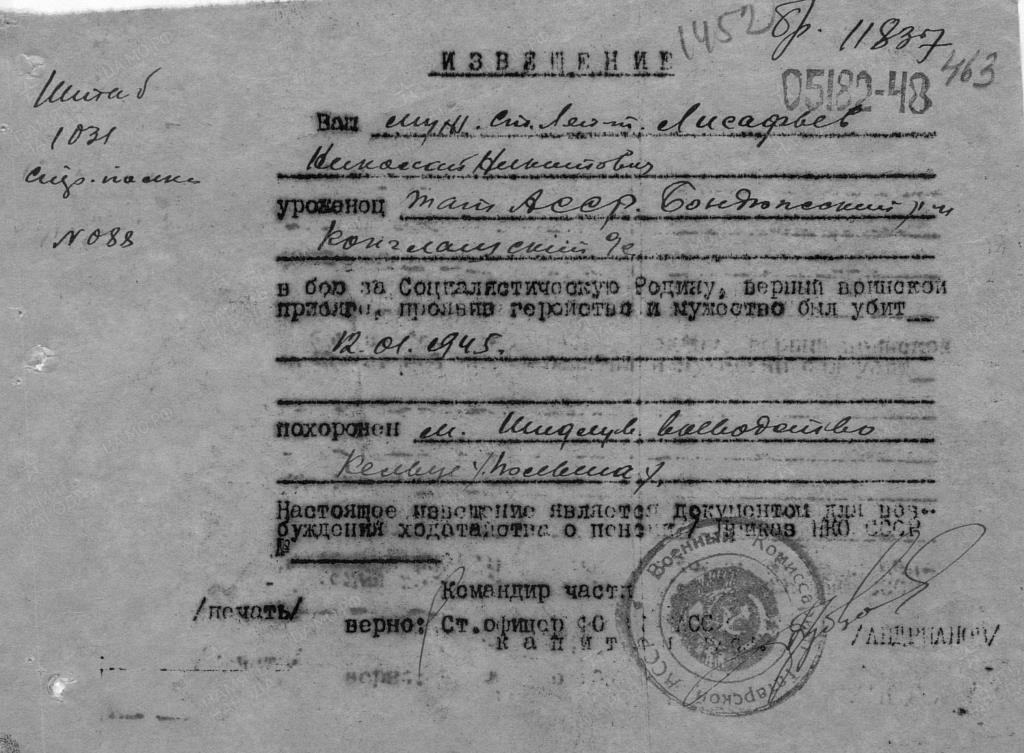 1452 бр. 11837
463
ИЗВЕЩЕНИЕ
05182-48
Штаб
1031
стр. полка
№ 088
Ваш муж. ст. лейт. Лисафьев
Николай Никитович
уроженец Тат АССР. Бондюжский р-н
в бою за Социалистическую Родину, верный воинской
присяге, проявив геройство и мужество был убит
12.01.1945.
похоронен м. Шидлув воеводство
Кельце /Польша/
Настоящее извещение является документом для воз-
буждения ходатайства о пенсии / Приказ НКО СССР
№
Командир части
/печать/
верно: Ст.офицер АССР
капитан
/АНДРИАНОВ/
Военный Комиссар Татарской АССР